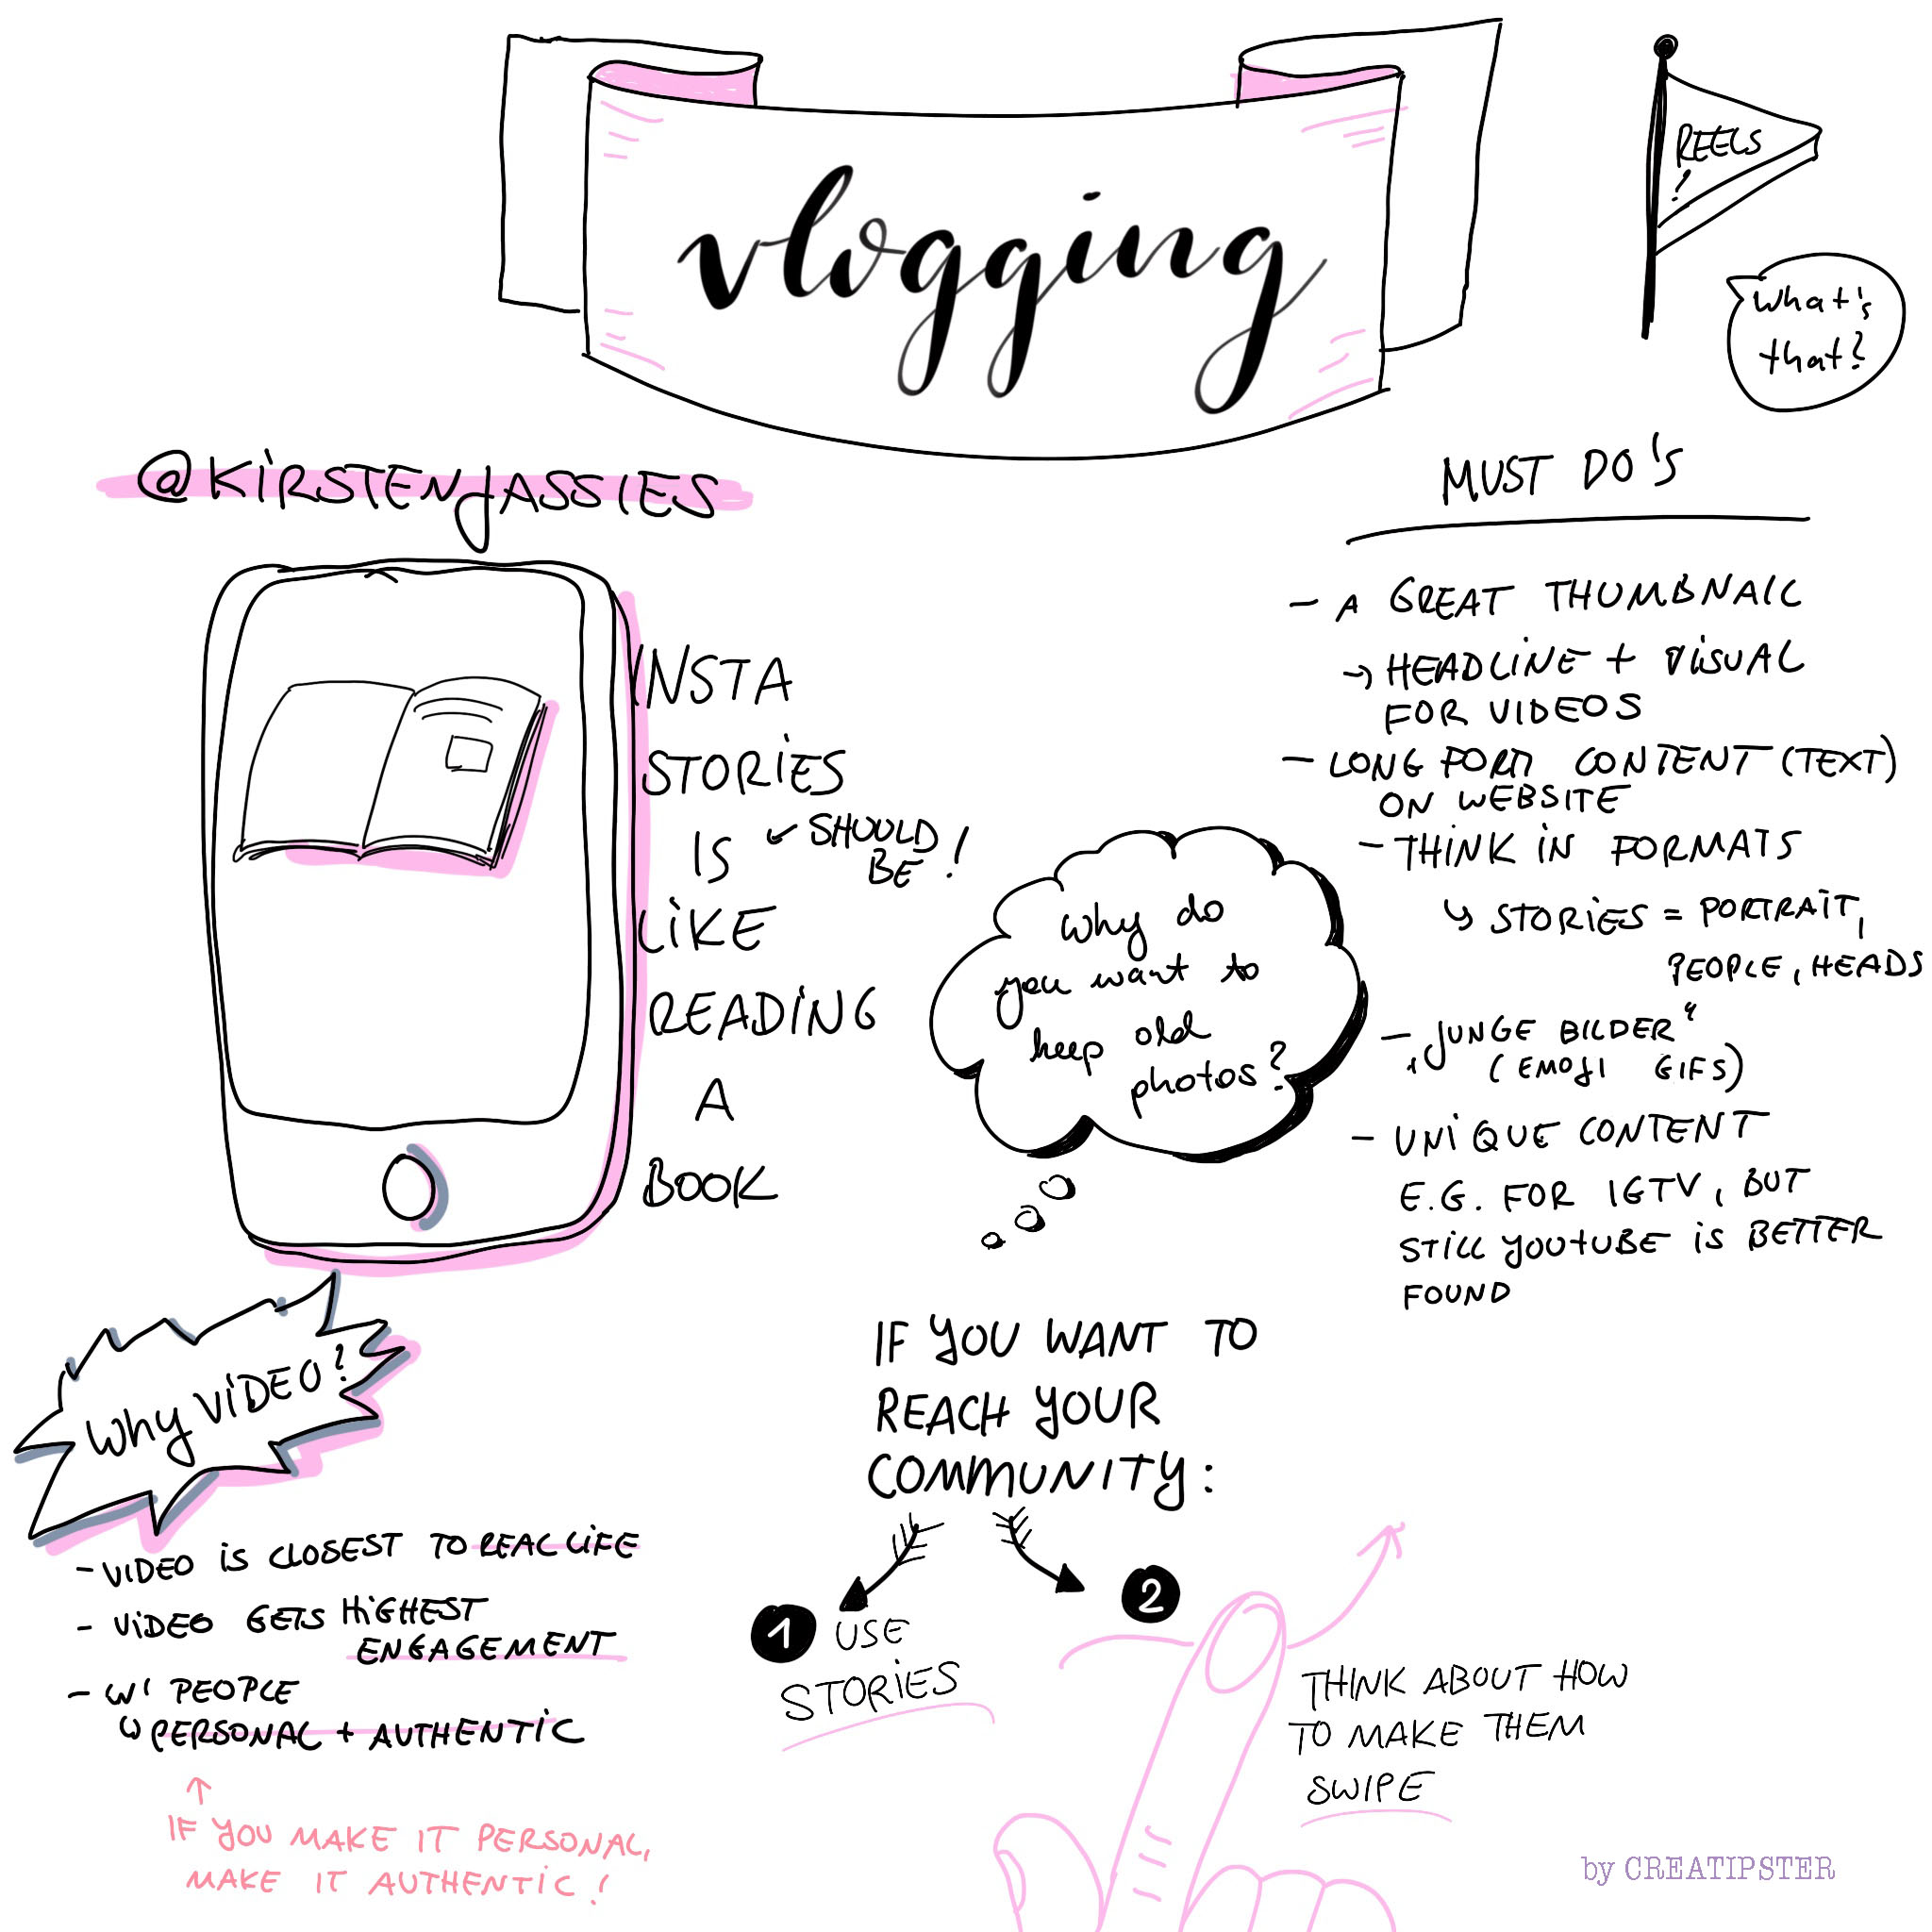 vlogging
REELS
!
What's
that?
@KIRSTENJASSIES
INSTA
STORIES
IS ↙ SHOULD
BE !
LIKE
READING
A
BOOK
MUST DO'S
- A GREAT THUMBNAIL
→ HEADLINE + VISUAL
FOR VIDEOS
- LONG FORM CONTENT (TEXT)
ON WEBSITE
- THINK IN FORMATS
↳ STORIES = PORTRAIT,
PEOPLE, HEADS
- „JUNGE BILDER“
(EMOJI GIFS)
- UNIQUE CONTENT
E.G. FOR IGTV, BUT
STILL YOUTUBE IS BETTER
FOUND
Why do
you want to
keep old
photos?
Why VIDEO?
- VIDEO IS CLOSEST TO REAL LIFE
- VIDEO GETS HIGHEST
ENGAGEMENT
- W' PEOPLE
↳ PERSONAL + AUTHENTIC
↑
IF YOU MAKE IT PERSONAL,
MAKE IT AUTHENTIC!
IF YOU WANT TO
REACH YOUR
COMMUNITY:
1 USE
STORIES
2
THINK ABOUT HOW
TO MAKE THEM
SWIPE
by CREATIPSTER